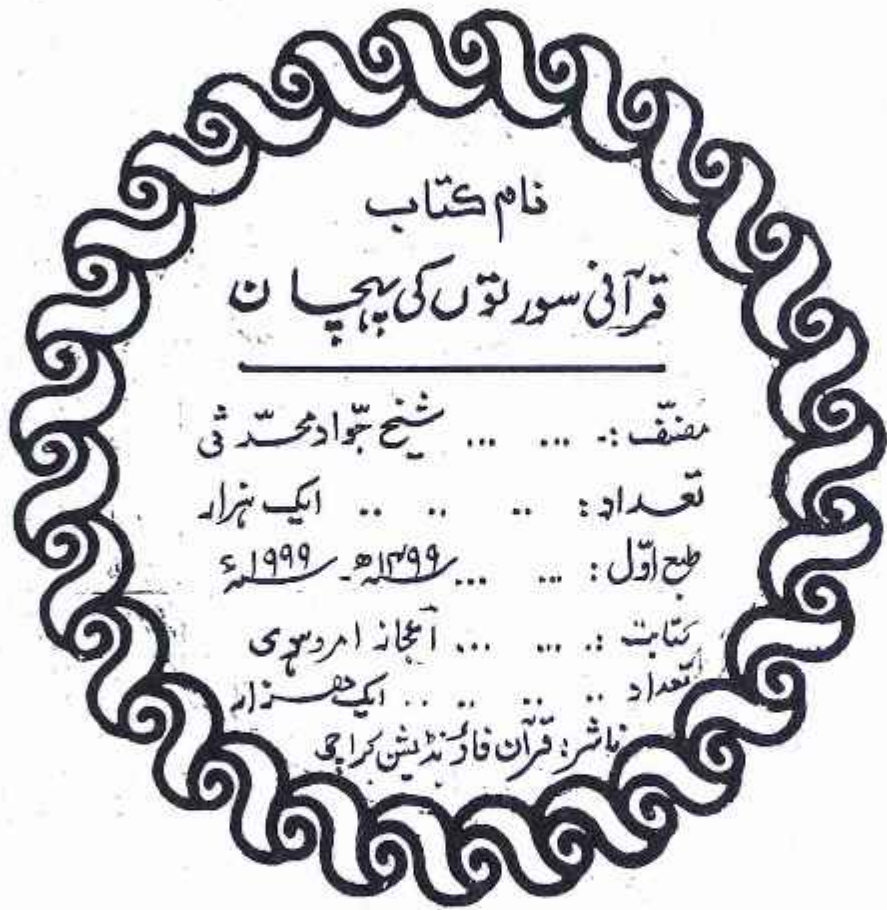 نام کتاب
قرآنی سورتوں کی پہچان
مصنّف :۔ ... ... شیخ جوّاد محدّثی
تعداد : .. .. .. ایک ہزار
طبع اوّل : ... ... ۱۳۹۹ھ۔ ۱۹۹۹ء
کتابت :۔ ... ... اعجاز امروہوی
تعداد .. .. .. .. ایک ہزار
ناشر : قرآن فاؤنڈیشن کراچی